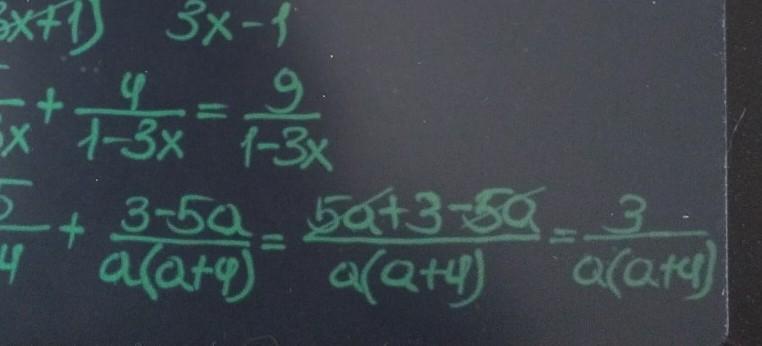 3x+1) 3x-1
+ 4/(1-3x) = 9/(1-3x)
+ (3-5a)/(a(a+4)) = (5a+3-5a)/(a(a+4)) = 3/(a(a+4))